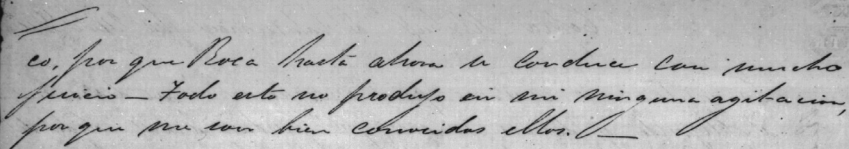 co, por que Roca hasta ahora se conduce con mucho
juicio — Todo esto no produjo en mi ninguna agitacion,
porque me son bien conocidos ellos. —